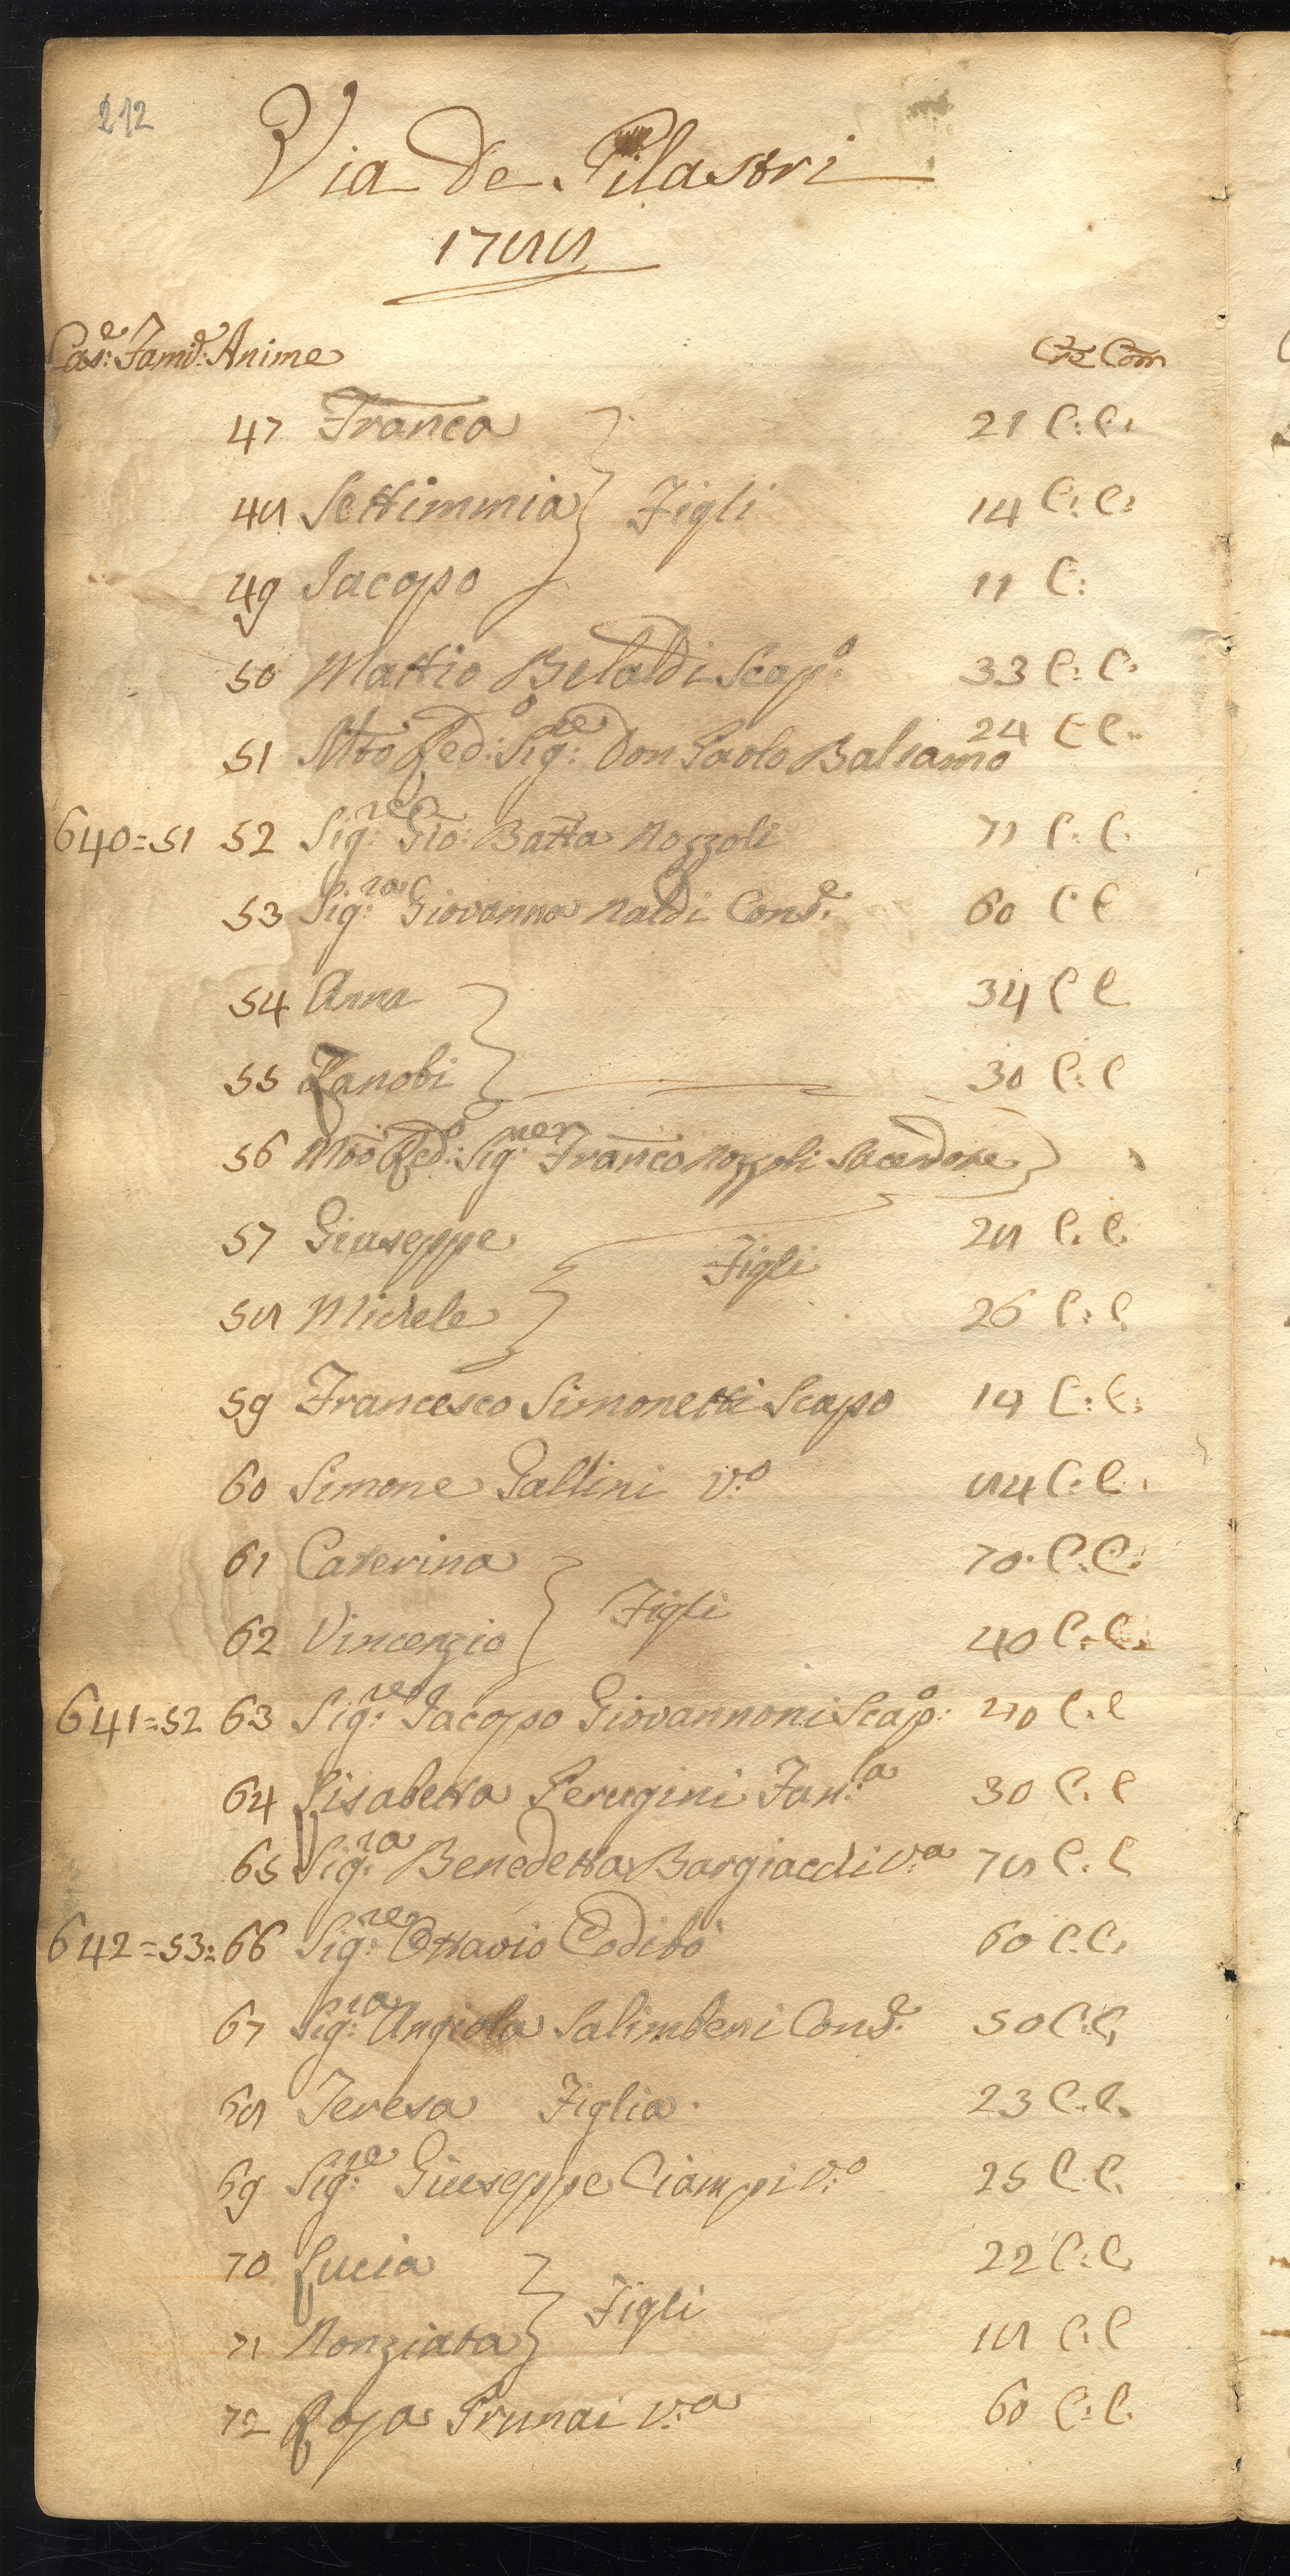 212
Via de Pilastri
1788
Cas:e Famig:e Anime Cre Com
47 Franca 21 C: C:
48 Settimmia Figli 14 C: C:
49 Jacopo 11 C:
50 Mattio Belaldi Scap:o 33 C: C:
51 Mto Red:o Sig:re Don Paolo Balsamo 24 C C:
640=51 52 Sig:re Gio: Batta Nozzoli 71 C: C:
53 Sig:ra Giovanna Naldi Cons:e 60 C C
54 Anna 34 C C
55 Zanobi 30 C: C
56 Mto Red:o Sig:re Franco Nozzoli Sacerdote
57 Giuseppe 28 C. C.
Figli
58 Michele 26 C: C
59 Francesco Simonetti Scapo 19 C: C:
60 Simone Pallini V:o 84 C: C:
61 Caterina 70. C: C:
Figli
62 Vincenzio 40 C. C.
641=52 63 Sig:re Jacopo Giovannoni Scap:o C. C
64 Lisabetta Perugini Fan:la 30 C. C
65 Sig:ra Benedetta Bargiacchi V:a 78 C. C
642=53: 66 Sig:re Ottavio Codibò 60 C. C.
67 Sig:ra Angiola Salimbeni Cons:e 50 C. C,
68 Teresa Figlia. 23 C. C.
69 Sig:re Giuseppe Ciampi V:o 25 C. C.
70 Lucia 22 C: C.
Figli
71 Nonziata 18 C: C
72 Rosa Prunai V:a 60 C: C.